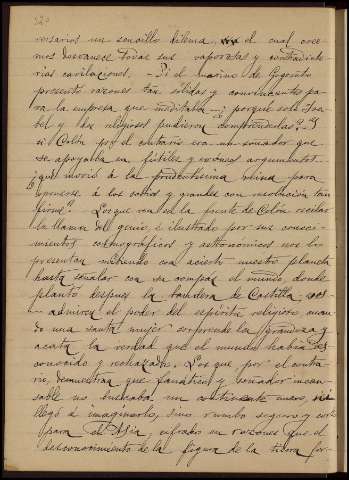 versarios un sencillo dilema, en el cual cree-
mos desvanece todas sus vaporosas y contradicto-
rias cavilaciones. — Si el marino de Gogoreto
presentó razones tan sólidas y convincentes pa-
ra la empresa que meditaba — ¿ porque solo Isa-
bel y dos religiosos pudieron comprenderlas? Y
si Colón por el contrario era un soñador que
se apoyaba en fútiles y vanos argumentos
¿qué movió á la prudentísima reina para
oponerse á los sabios y grandes con resolución tan
firme? — Los que ven en la frente de Colón
la llama del genio, é ilustrado por sus conoci-
mientos cosmográficos y astronómicos nos lo
presentan midiendo con acierto nuestro planeta
hasta señalar con su compas el mundo donde
plantó despues la bandera de Castilla,
admiren el poder del espíritu religioso, cuan-
do una santa mujer sorprende la grandeza y
acata la verdad que el mundo había des
conocido y rechazado. Los que por el contra-
rio, demuestran que fanático y soñador incan-
sable no buscaba un continente nuevo, ni
llegó á imaginarlo, sino rumbo seguro y
para el Asia, cifrados en razones que el
desconocimiento de la figura de la tierra for-